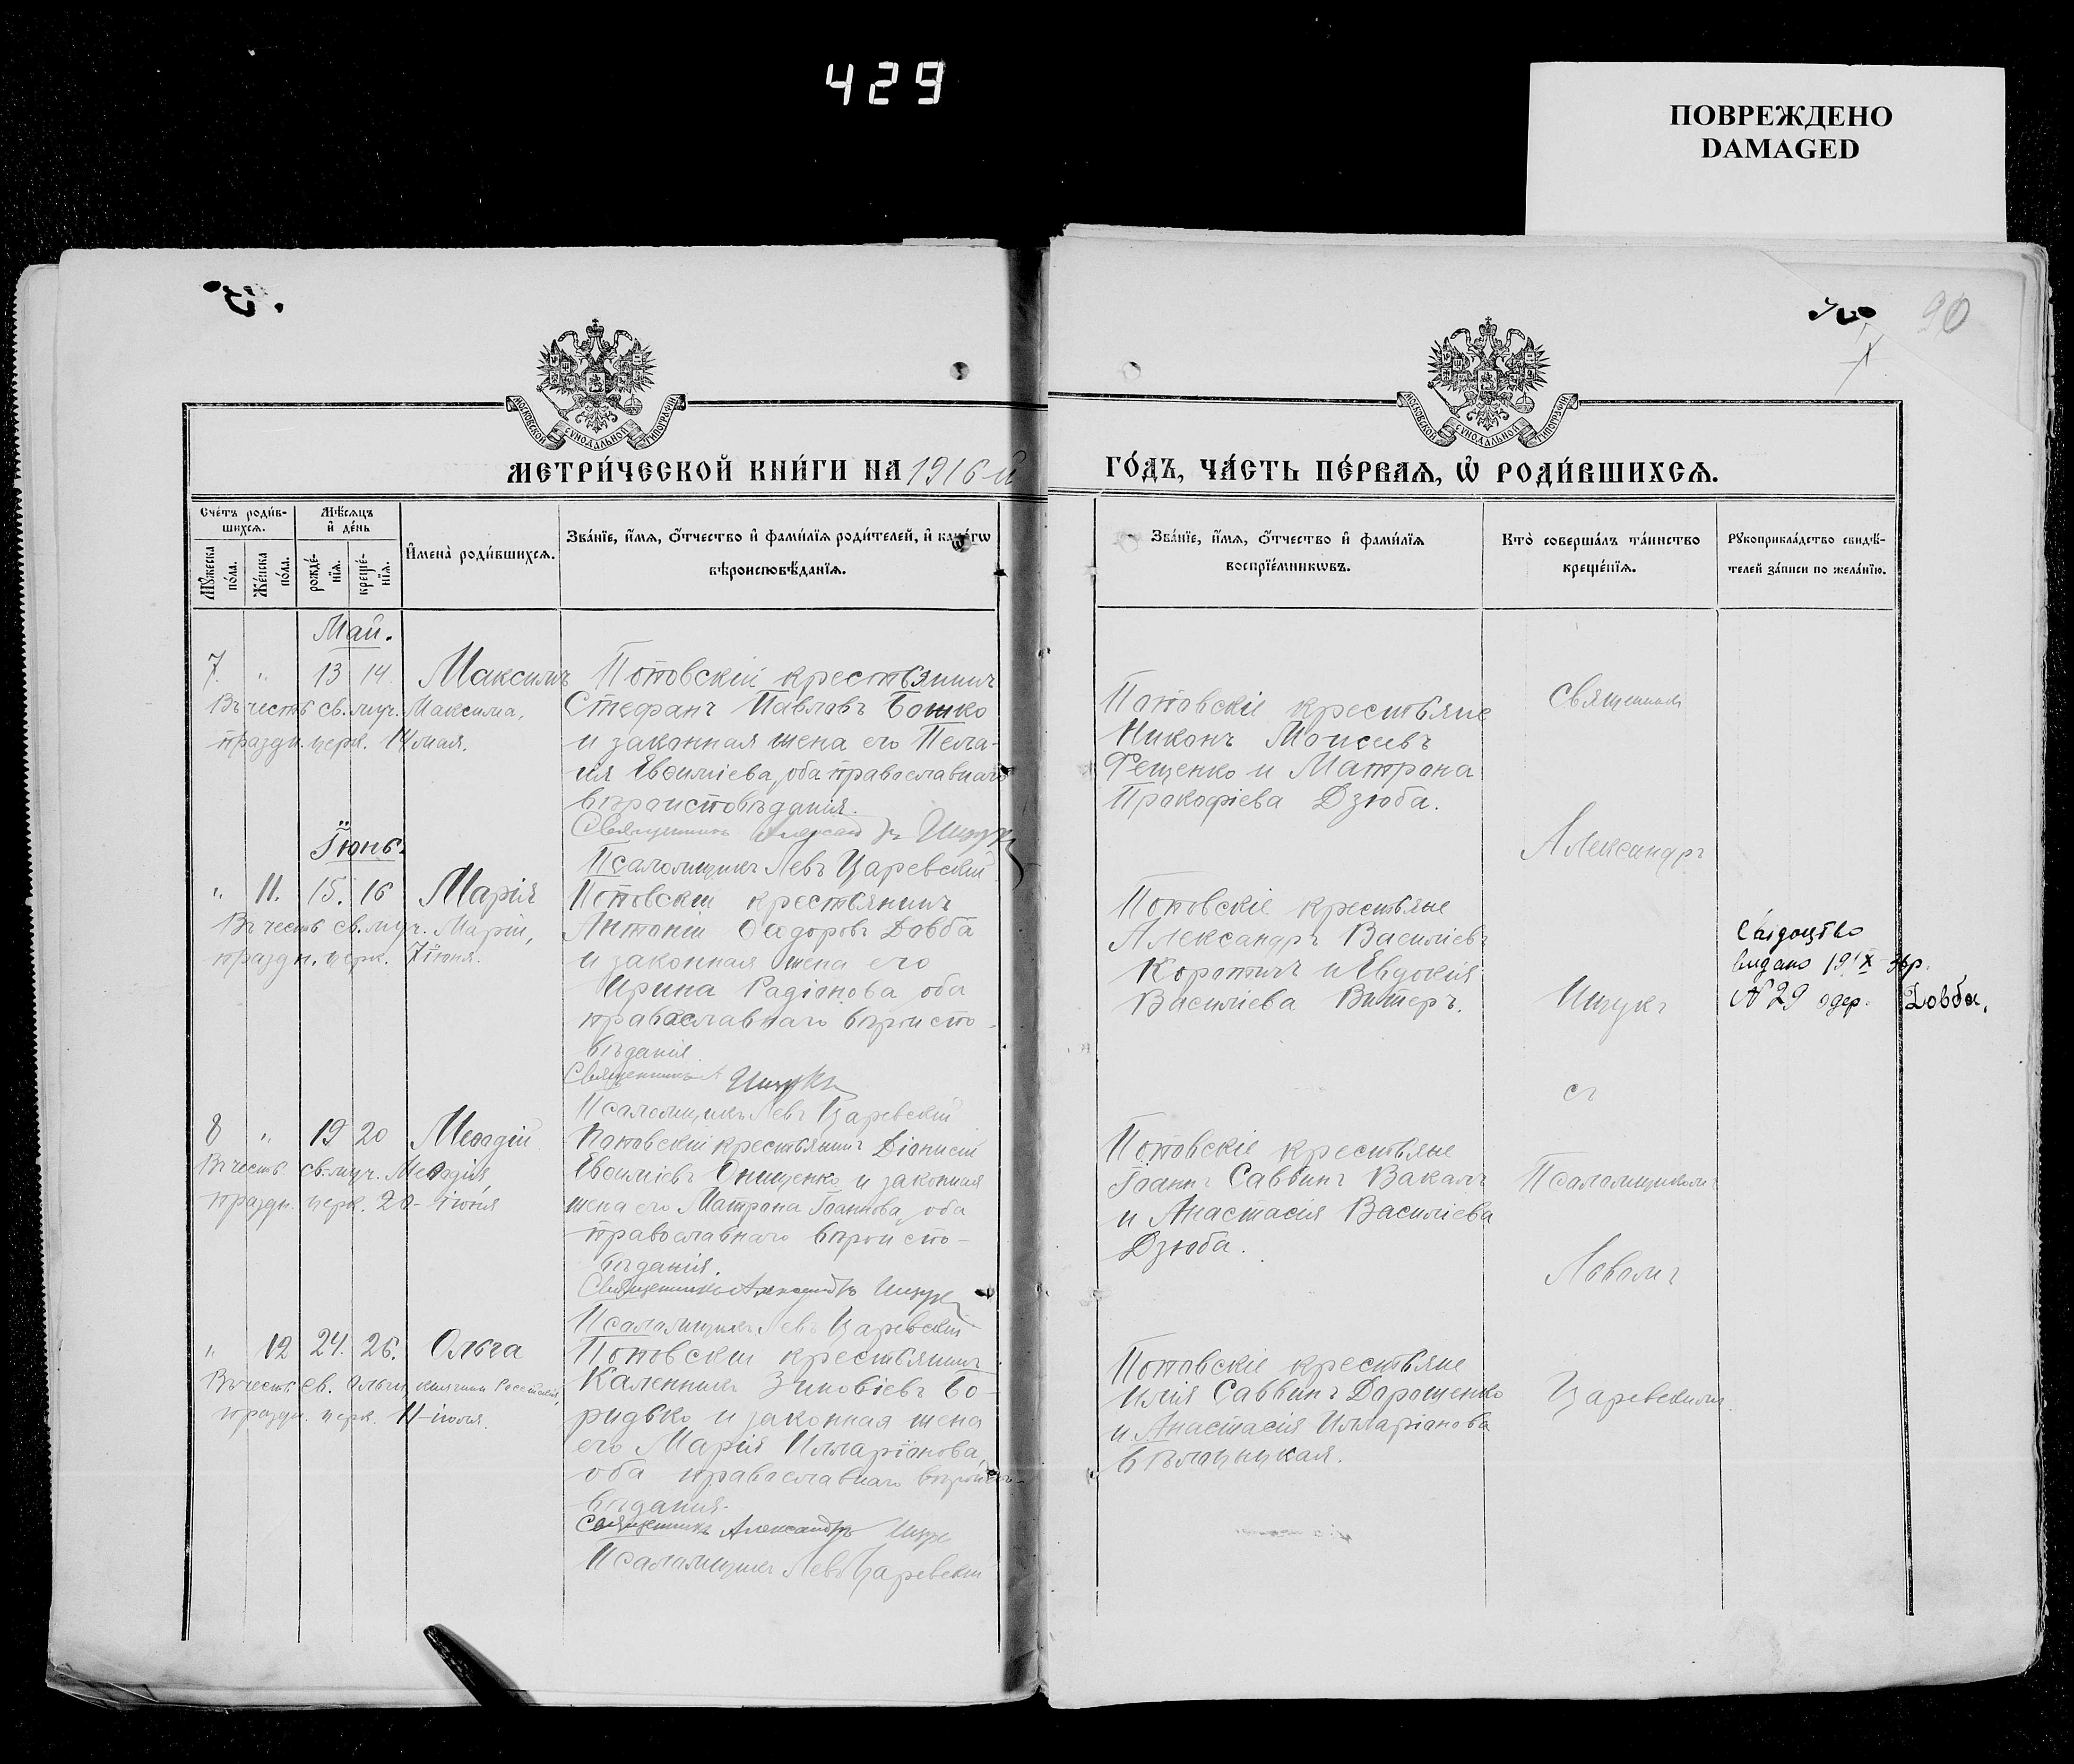 429
ПОВРЕЖДЕНО
DAMAGED
90
МОСКОВСКОЙ СѴНОДАЛЬНОЙ ТИПОГРАФІИ
МОСКОВСКОЙ СѴНОДАЛЬНОЙ ТИПОГРАФІИ
МЕТРИ́ЧЕСКОЙ КНИ́ГИ НА 1916-й
ГО́ДЪ, ЧА́СТЬ ПЕ́РВАЯ, Ѡ РОДИ́ВШИХСЯ.
Сче́тъ роди́в-
шихся.
Мѣ́сяцъ
и де́нь
Му́жеска
по́ла.
Же́нска
по́ла.
рожде́-
нїя.
креще́-
нїя.
Имена̀ роди́вшихся.
Зва́нїе, и́мя, о́тчество и фами́лїя роди́телей, и како́гѡ
вѣроисповѣ́данїя.
Зва́нїе, и́мя, о́тчество и фами́лїя
воспрїе́мникѡвъ.
Кто̀ соверша́лъ та́инство
креще́нїя.
Рукоприкла́дство свидѣ́-
телей за́писи по жела́нїю.
Май.
7. " 13 14. Максимъ
Въ честь св. муч. Максима,
праздн. церк. 14 мая.
Поповскій крестьянинъ
Стефанъ Павловъ Бошко
и законная жена его Пела-
гія Евѳиміева, оба православнаго
вѣроисповѣданія.
Священникъ Александръ Ищукъ
Псаломщикъ Левъ Царевскій
Поповскіе крестьяне
Никонъ Моисеевъ
Фещенко и Матрона
Прокофіева Дзюба.
Священникъ
Александръ
Іюнь.
" 11. 15. 16 Марія
Въ честь св. муч. Маріи,
праздн. церк. 7 іюня.
Поповскій крестьянинъ
Антоній Ѳеодоровъ Довба
и законная жена его
Ирина Радіонова, оба
православнаго вѣроиспо-
вѣданія.
Священникъ А Ищукъ
Псаломщикъ Левъ Царевскій
Поповскіе крестьяне
Александръ Василіевъ
Коротичъ и Евдокія
Василіева Витеръ.
Ищукъ
съ
Свідоцтво
видано 19 IX 36р.
№ 29 одер. Довба.
8 " 19 20 Меѳодій
Въ честь св. муч. Меѳодія,
праздн. церк. 20-іюня
Поповскій крестьянинъ Діонисій
Евѳиміевъ Онищенко и законная
жена его Матрона Іоаннова, оба
православнаго вѣроиспо-
вѣданія.
Священникъ Александръ Ищукъ
Псаломщикъ Левъ Царевскій
Поповскіе крестьяне
Іоаннъ Саввинъ Вакалъ
и Анастасія Василіева
Дзюба.
Псаломщикомъ
Львомъ
" 12 24. 26. Ольга
Въ честь св. Ольги, княгини Россійскія,
праздн. церк. 11-іюля.
Поповскій крестьянинъ
Каленникъ Зиновіевъ Бо-
ридько и законная жена
его Марія Илларіонова,
оба православнаго вѣроиспо-
вѣданія.
Священникъ Александръ Ищук
Псаломщикъ Левъ Царевскій
Поповскіе крестьяне
Илія Саввинъ Дорошенко
и Анастасія Илларіонова
Царевскимъ.